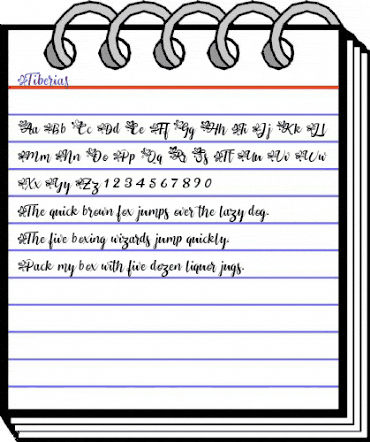 Tiberias
Aa Bb Cc Dd Ee Ff Gg Hh Ii Jj Kk Ll
Mm Nn Oo Pp Qq Rr Ss Tt Uu Vv Ww
Xx Yy Zz 1 2 3 4 5 6 7 8 9 0
The quick brown fox jumps over the lazy dog.
The five boxing wizards jump quickly.
Pack my box with five dozen liquor jugs.